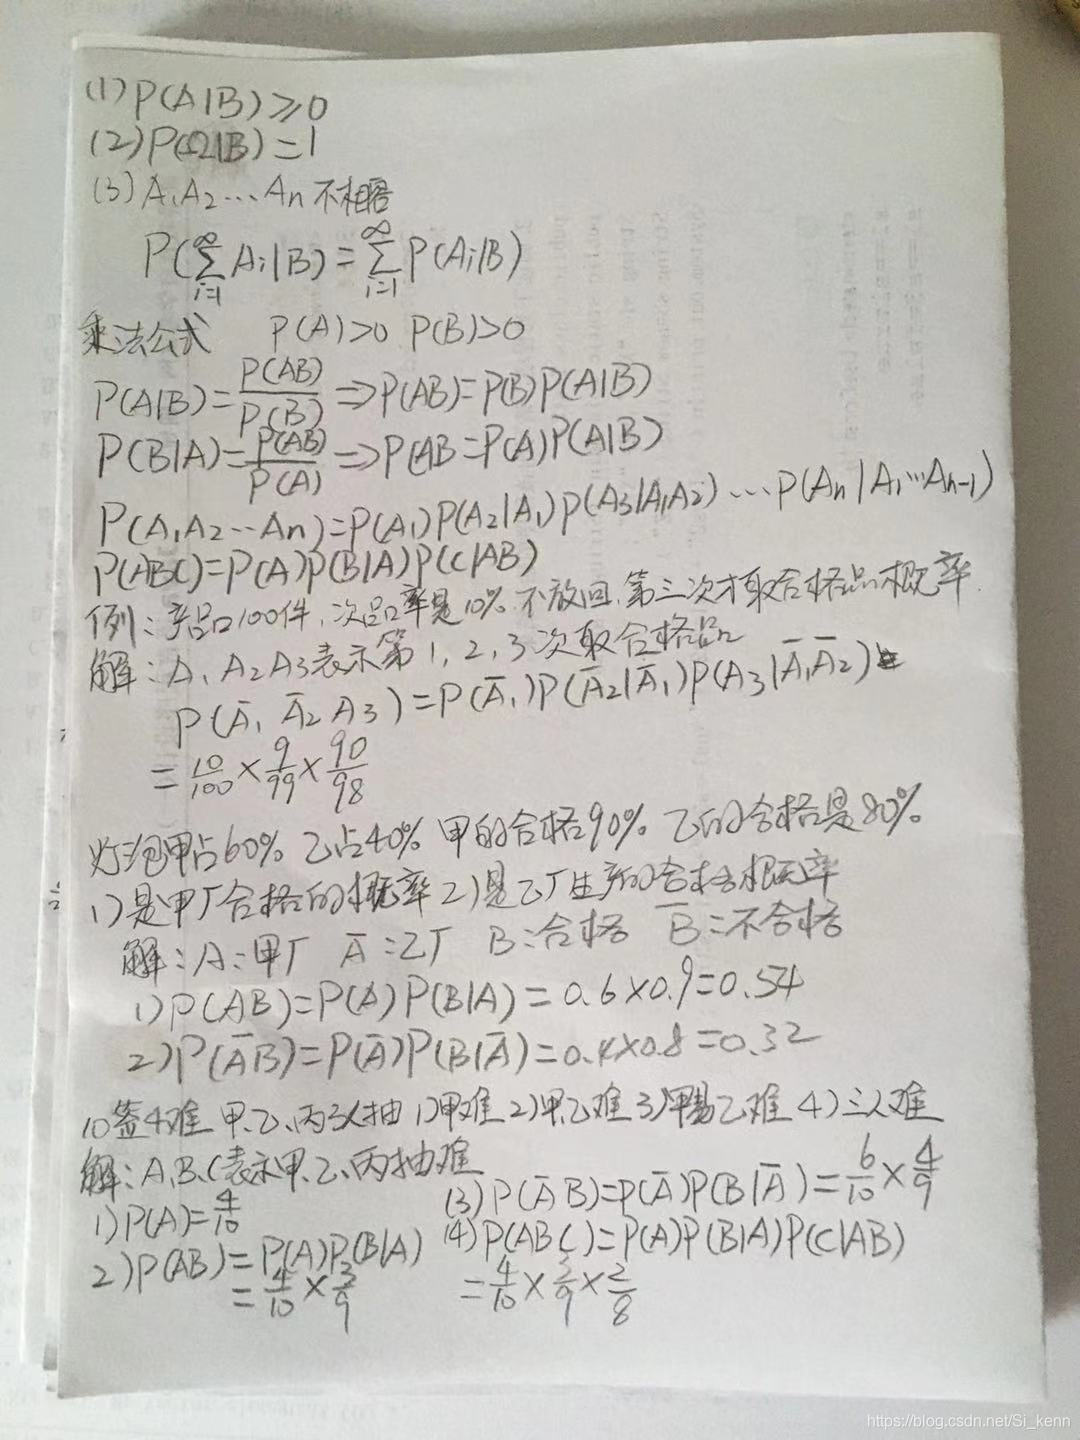 (1) P(A|B)≥0
(2) P(Ω|B)=1
(3) A₁A₂…An 不相容
P(∑_{i=1}^{∞} Ai|B)=∑_{i=1}^{∞} P(Ai|B)
乘法公式 P(A)>0 P(B)>0
P(A|B)=P(AB)/P(B) ⇒P(AB)=P(B)P(A|B)
P(B|A)=P(AB)/P(A) ⇒P(AB=P(A)P(A|B)
P(A₁A₂…An)=P(A₁)P(A₂|A₁)P(A₃|A₁A₂)…P(An|A₁…An-1)
P(ABC)=P(A)P(B|A)P(C|AB)
例:产品100件,次品率是10%.不放回,第三次才取合格品概率.
解:A₁A₂A₃表示第1,2,3次取合格品
P(Ā₁Ā₂A₃)=P(Ā₁)P(Ā₂|Ā₁)P(A₃|Ā₁Ā₂)
=10/100×9/99×90/98
灯泡甲占60% 乙占40% 甲的合格90% 乙的合格是80%
1)是甲厂合格的概率 2)是乙厂生产的合格概率
解:A:甲厂 Ā:乙厂 B:合格 B̄:不合格
1)P(AB)=P(A)P(B|A)=0.6×0.9=0.54
2)P(ĀB)=P(Ā)P(B|Ā)=0.4×0.8=0.32
10签4难 甲、乙、丙3人抽 1)甲难 2)甲乙难 3)甲易乙难 4)三人难
解:A,B,C表示甲、乙、丙抽难
1)P(A)=4/10
2)P(AB)=P(A)P(B|A)
=4/10×3/9
(3)P(ĀB)=P(Ā)P(B|Ā)=6/10×4/9
(4)P(ABC)=P(A)P(B|A)P(C|AB)
=4/10×3/9×2/8
https://blog.csdn.net/Si_kenn